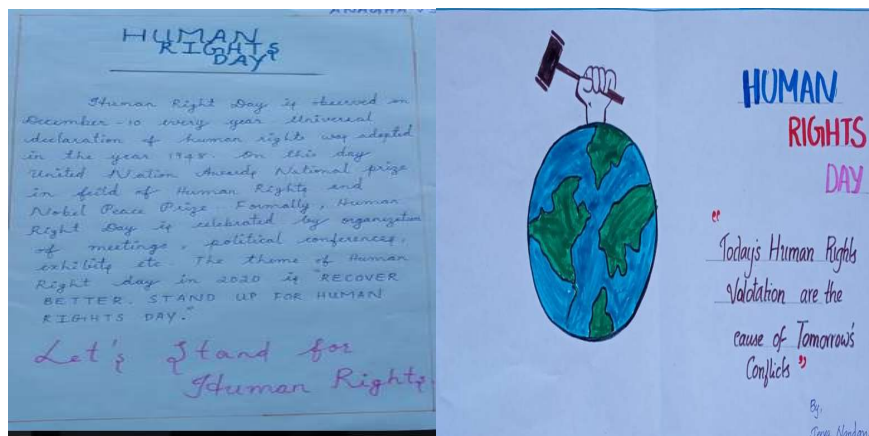 HUMAN
RIGHTS
DAY
Human Right Day is observed on
December-10 every year Universal
declaration of human rights was adopted
in the year 1948. On this day
United Nation Awards National prize
in feild of Human Rights and
Nobel Peace Prize. Formally, Human
Right Day is celebrated by organization
of meetings, political conferences,
exhibits etc. The theme of Human
Right day in 2020 is "RECOVER
BETTER. STAND UP FOR HUMAN
RIGHTS DAY."
Let's Stand for
Human Rights.
HUMAN
RIGHTS
DAY
"Today's Human Rights
Valotation are the
cause of Tomorrow's
Conflicts"
By,